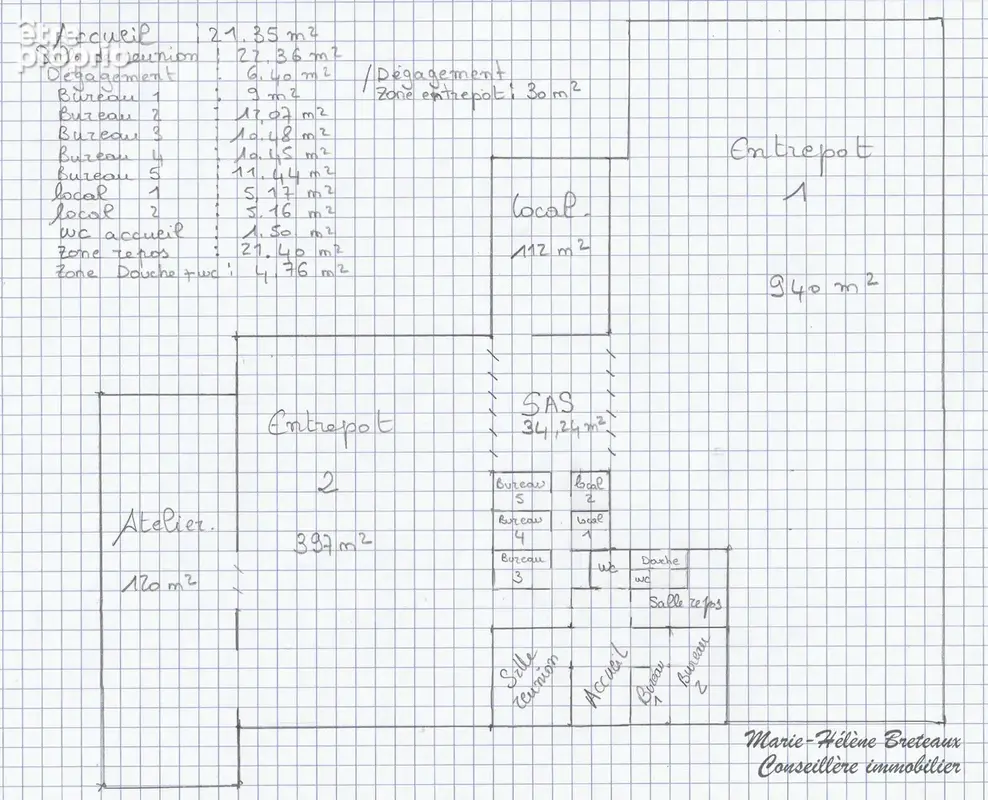 être
proprio
Accueil : 21.35 m²
réunion : 22.36 m²
Dégagement : 6.40 m²
Bureau 1 : 9 m²
Bureau 2 : 12,07 m²
Bureau 3 : 10.48 m²
Bureau 4 : 10.45 m²
Bureau 5 : 11.44 m²
local 1 : 5,17 m²
local 2 : 5.16 m²
WC accueil : 1.50 m²
Zone repos : 21.40 m²
Zone Douche + wc : 4,76 m²
/ Dégagement
Zone entrepot : 30 m²
Entrepot
1
940 m²
local.
112 m²
SAS
34,24 m²
Entrepot
2
397 m²
Atelier.
120 m²
Bureau
5
local
2
Bureau
4
local
1
Bureau
3
wc
Douche
wc
Salle repos
Salle
reunion
Accueil
Bureau
1
Bureau
2
Marie-Hélène Breteaux
Conseillère immobilier